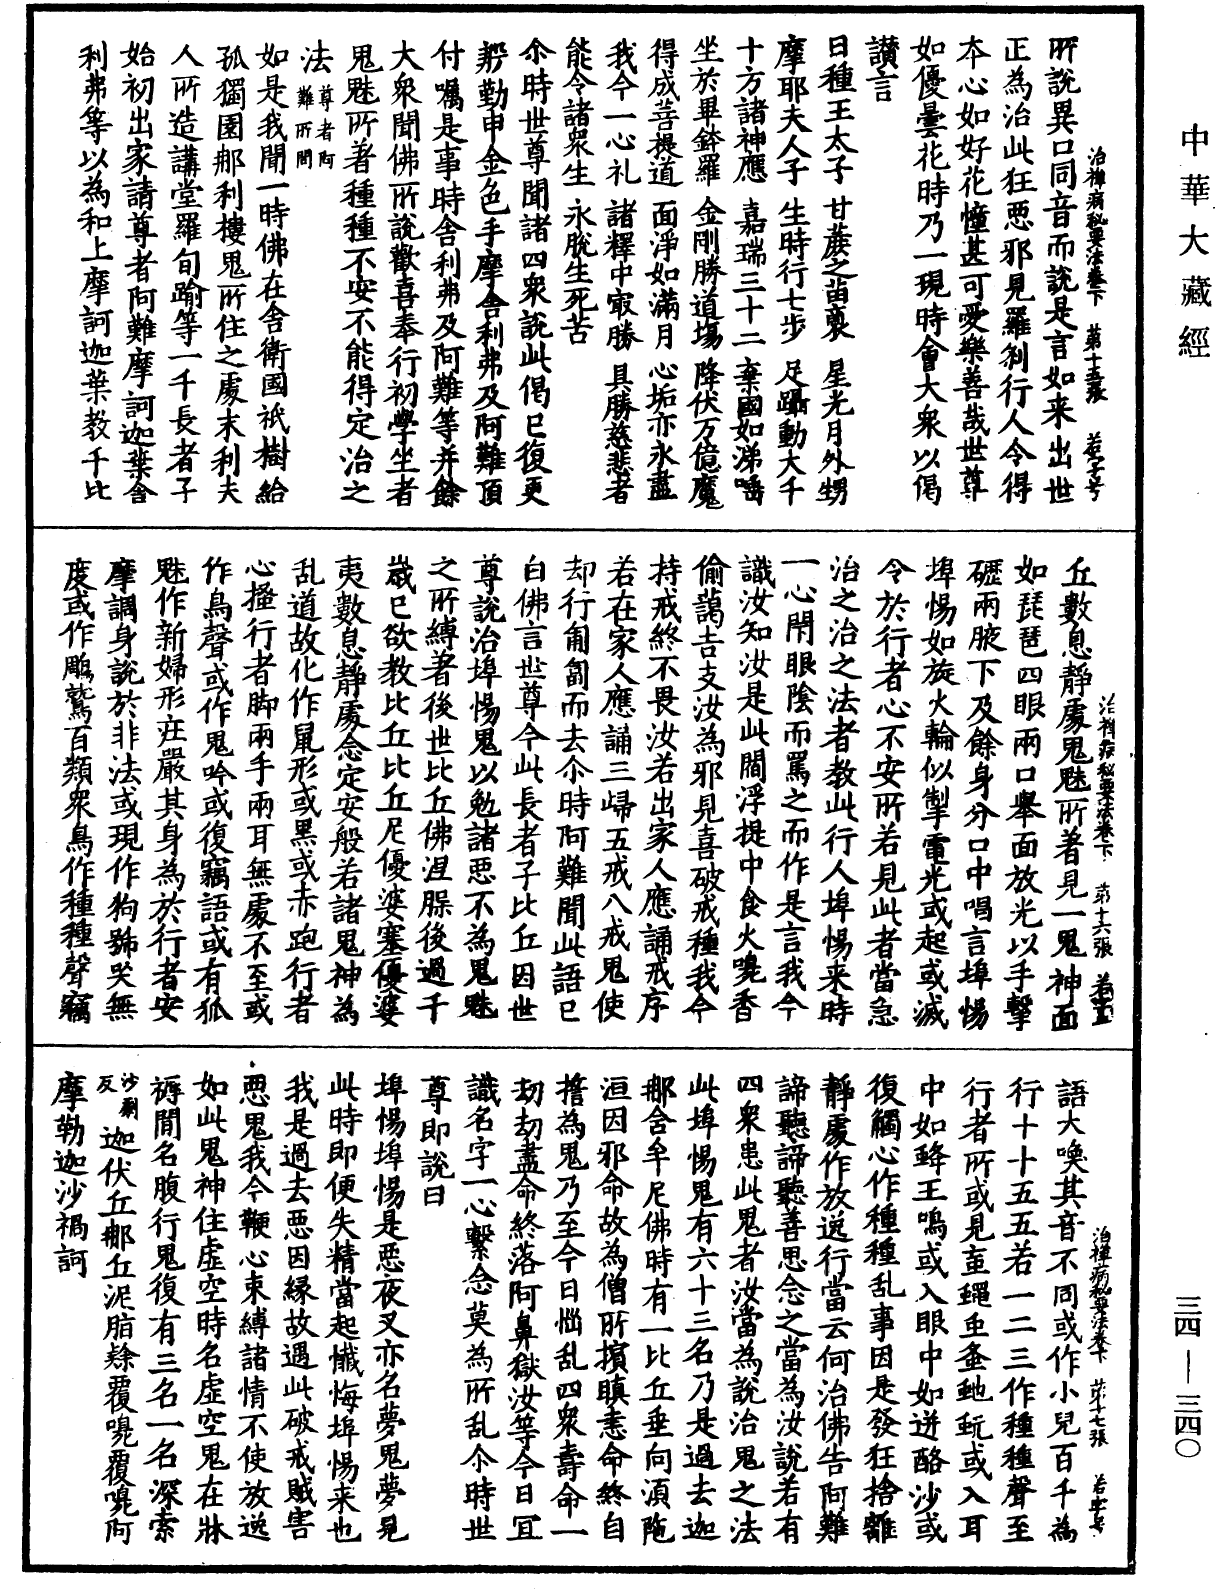 中華大藏經
三四—三四〇
治禪病秘要法卷下　第十五張　若字号
所說異口同音而說是言如来出世
正為治此狂惡邪見羅剎行人令得
本心如好花幢甚可愛樂善哉世尊
如優曇花時乃一現時會大衆以偈
讃言
日種王太子　甘蔗之苗裔　星光月外甥
摩耶夫人子　生時行七步　足躡動大千
十方諸神應　嘉瑞三十二　棄國如涕唾
坐於畢鉢羅　金剛勝道場　降伏万億魔
得成菩提道　面淨如滿月　心垢亦永盡
我今一心礼　諸釋中㝡勝　具勝慈悲者
能令諸衆生　永脫生死苦
尒時世尊聞諸四衆說此偈已復更
慇勤申金色手摩舍利弗及阿難頂
付囑是事時舍利弗及阿難等并餘
大衆聞佛所說歡喜奉行初學坐者
鬼魅所著種種不安不能得定治之
法尊者阿難所問
如是我聞一時佛在舍衛國祇樹給
孤獨園郍利樓鬼所住之處末利夫
人所造講堂羅旬踰等一千長者子
始初出家請尊者阿難摩訶迦葉舍
利弗等以為和上摩訶迦葉教千比
治禪病秘要法卷下　第十六張
丘數息靜處鬼魅所著見一鬼神面
如琵琶四眼兩口舉面放光以手擊
攊兩腋下及餘身分口中唱言埠惕
埠惕如旋火輪似掣電光或起或滅
令於行者心不安所若見此者當急
治之治之法者教此行人埠惕来時
一心閇眼陰而罵之而作是言我今
識汝知汝是此閻浮提中食火嗅香
偷蘭吉支汝為邪見喜破戒種我今
持戒終不畏汝若出家人應誦戒序
若在家人應誦三歸五戒八戒鬼便
却行匍匐而去尒時阿難聞此語已
白佛言世尊今此長者子比丘因世
尊說治埠惕鬼以勉諸惡不為鬼魅
之所縛著後世比丘佛涅槃後過千
歲已欲教比丘比丘尼優婆塞優婆
夷數息靜處念定安般若諸鬼神為
乱道故化作鼠形或黑或赤跑行者
心搔行者脚兩手兩耳無處不至或
作鳥聲或作鬼吟或復竊語或有狐
魅作新婦形庄嚴其身為於行者安
摩調身說於非法或現作狗號哭無
度或作鵰鷲百類衆鳥作種種聲竊
治禪病秘要法卷下　第十七張　若字号
語大喚其音不同或作小兒百千為
行十十五五若一二三作種種聲至
行者所或見蚉蠅虫蚤虵蚖或入耳
中如蜂王鳴或入眼中如迸酪沙或
復觸心作種種乱事因是發狂捨離
靜處作放逸行當云何治佛告阿難
諦聽諦聽善思念之當為汝說若有
四衆患此鬼者汝當為說治鬼之法
此埠惕鬼有六十三名乃是過去迦
郍舍牟尼佛時有一比丘垂向湏陁
洹因邪命故為僧所擯瞋恚命終自
擔為鬼乃至今日惱乱四衆壽命一
劫劫盡命終落阿鼻獄汝等今日宜
識名字一心繫念莫為所乱尒時世
尊即說曰
埠惕埠惕是惡夜叉亦名夢鬼夢見
此時即便失精當起懺悔埠惕来也
我是過去惡因緣故遇此破戒賊害
惡鬼我今鞭心束縛諸情不使放逸
如此鬼神住虛空時名虛空鬼在牀
褥間名腹行鬼復有三名一名深索
沙劑反　迦伏丘郍丘泥脂䅣覆嗅覆嗅阿
摩勒迦沙禍訶